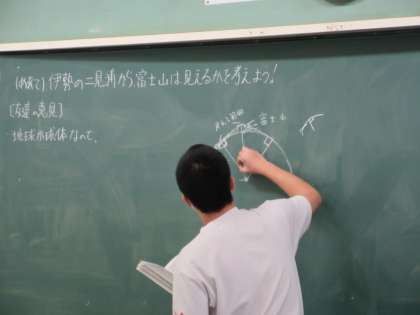 (めあて)伊勢の二見浦から、富士山は見えるかを考えよう!
[友達の意見]
地球が球体なので、
富士山